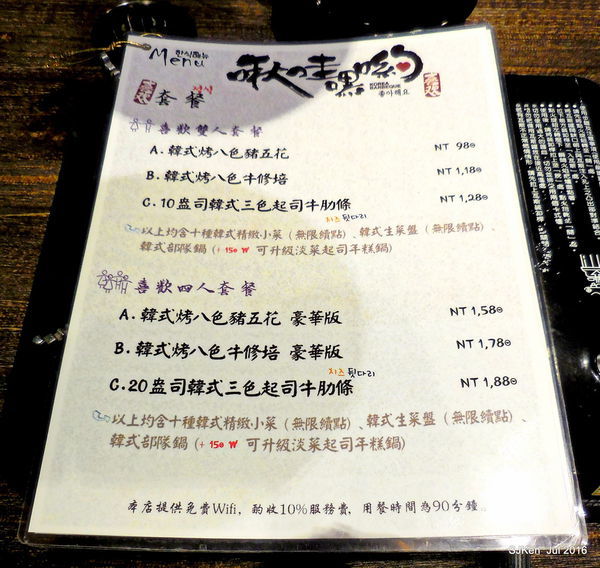 한식메뉴
Menu
啾哇嘿喲
KOREA
BARBECUE
좋아해요
套餐 정식
喜歡雙人套餐
A. 韓式烤八色豬五花 NT 980
B. 韓式烤八色牛修培 NT 1,180
C. 10盎司韓式三色起司牛肋條 NT 1,280
치즈 뒷다리
以上均含十種韓式精緻小菜（無限續點）、韓式生菜盤（無限續點）、
韓式部隊鍋 (+ 150 ₩ 可升級淡菜起司年糕鍋)
喜歡四人套餐
A. 韓式烤八色豬五花 豪華版 NT 1,580
B. 韓式烤八色牛修培 豪華版 NT 1,780
치즈 뒷다리
C. 20盎司韓式三色起司牛肋條 NT 1,880
以上均含十種韓式精緻小菜（無限續點）、韓式生菜盤（無限續點）、
韓式部隊鍋 (+ 150 ₩ 可升級淡菜起司年糕鍋)
本店提供免費Wifi，酌收10%服務費，用餐時間為90分鐘。
SJKen Jul 2016